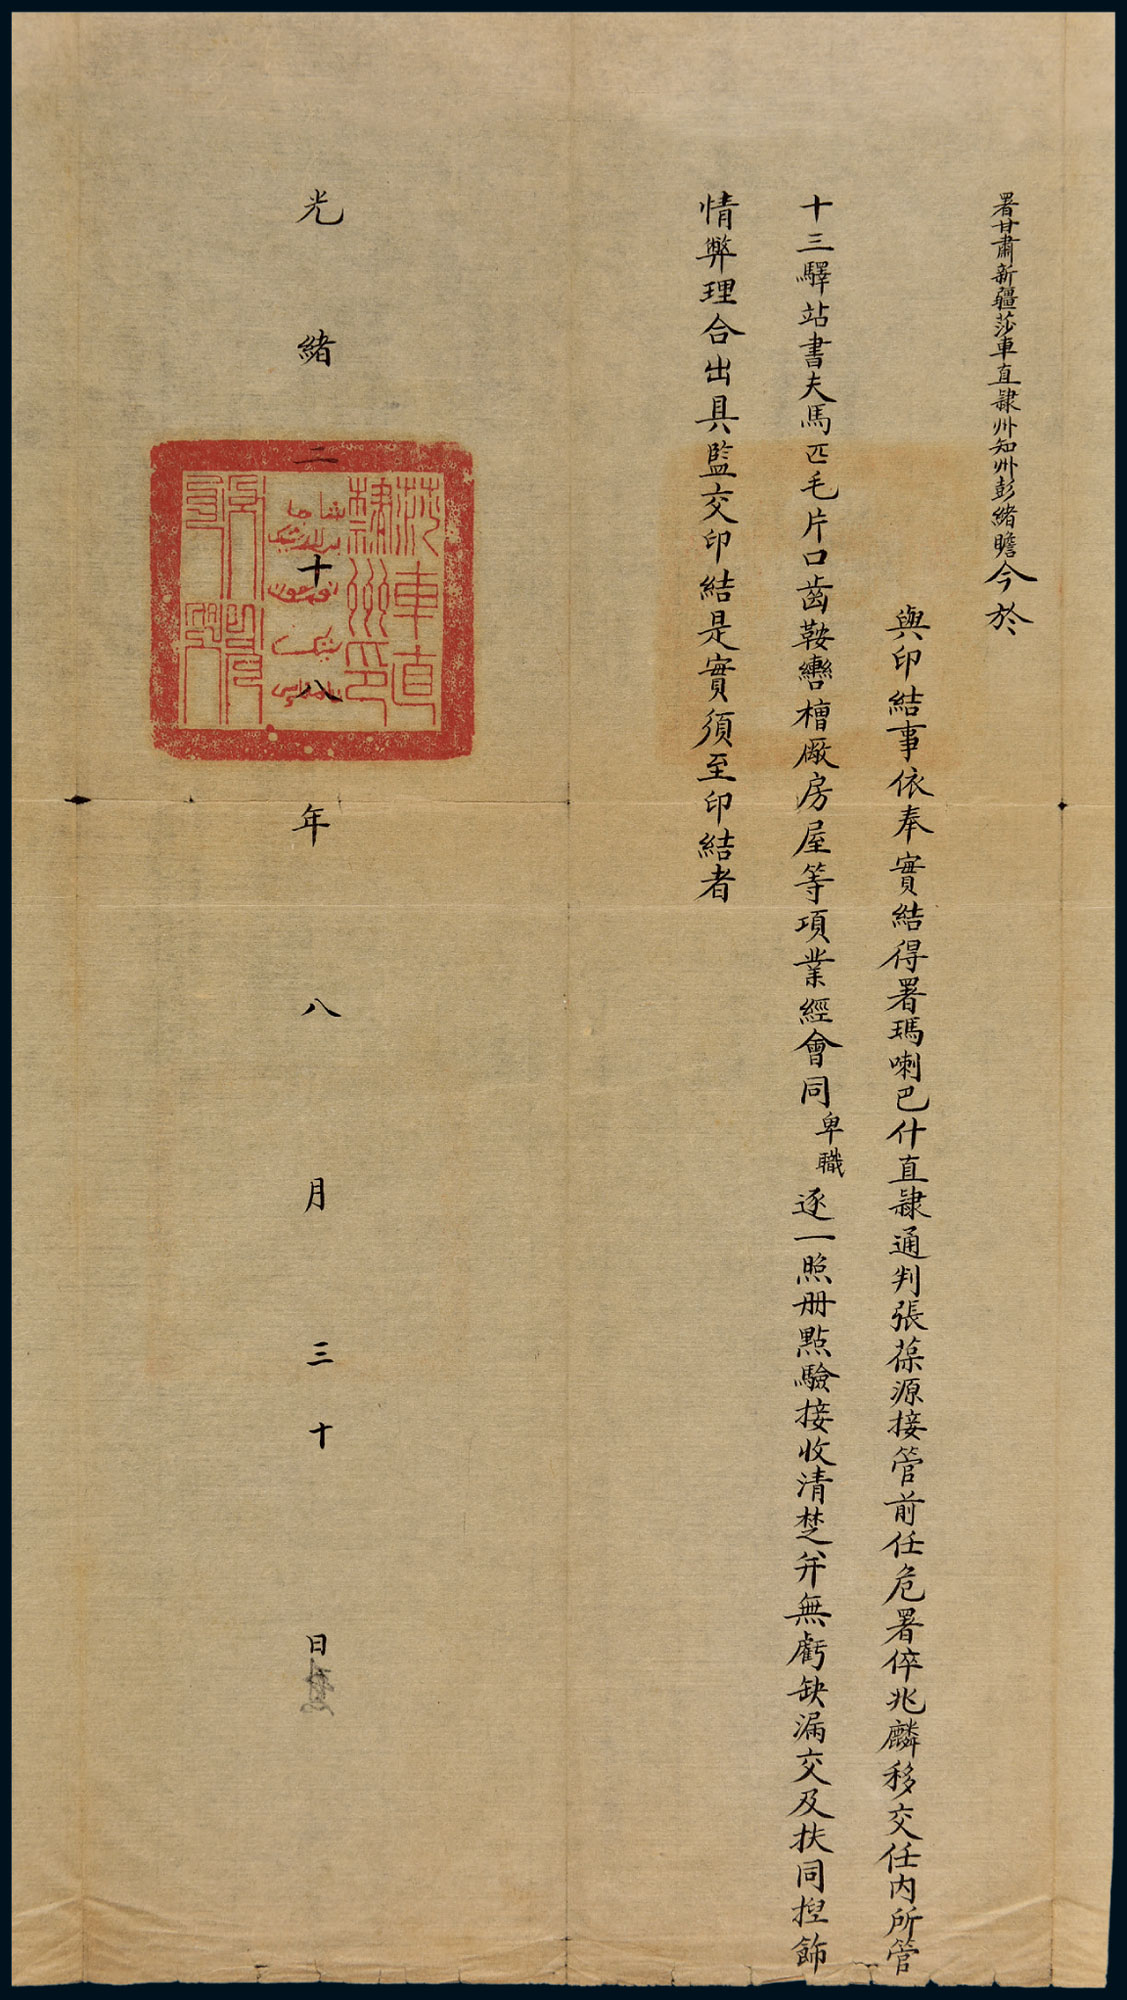 署甘肅新疆莎車直隸州知州彭緒瞻今於
與印結事依奉實結得署瑪喇巴什直隸通判張葆源接管前任危署倅兆麟移交任內所管
十三驛站書夫馬匹毛片口齒鞍轡槽廠房屋等項業經會同卑職逐一照册點驗接收清楚并無虧缺漏交及扶同揑飾
情弊理合出具監交印結是實須至印結者
光緒二十八年八月三十日
莎車直
隸州印